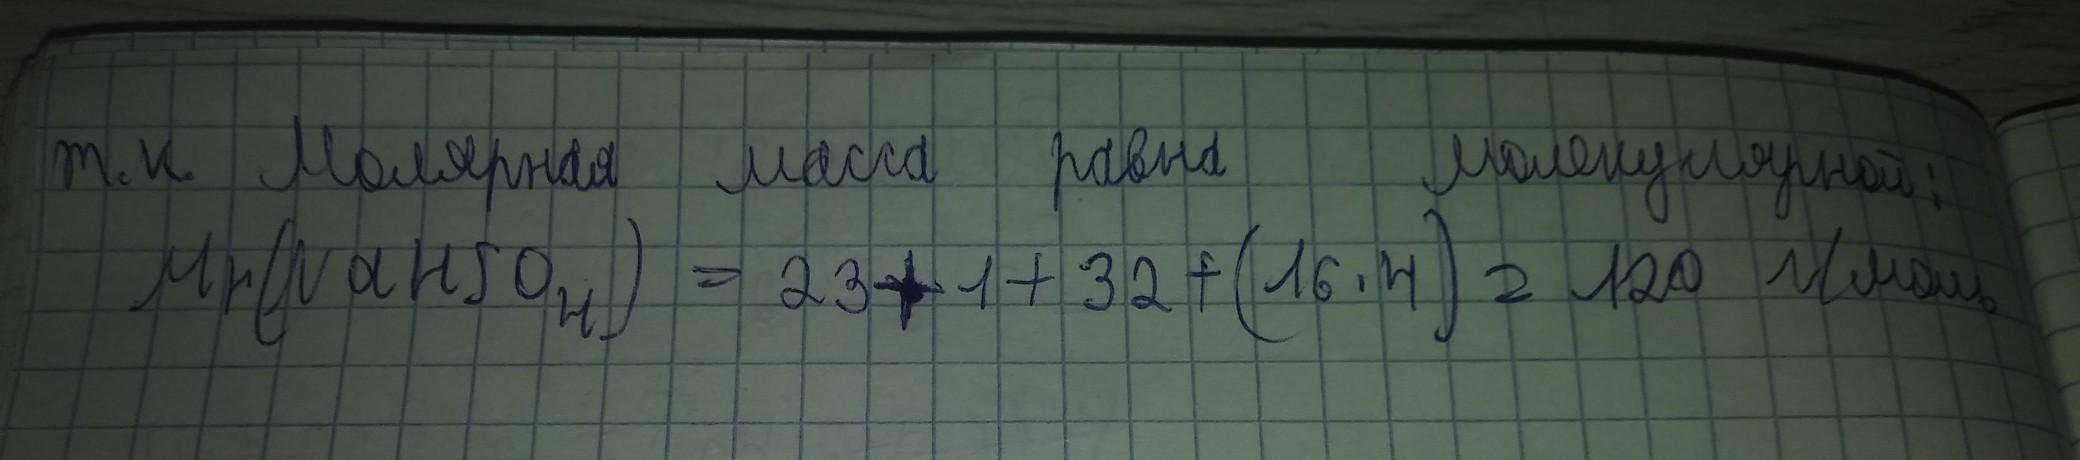 т.к. Молярная масса равна молекулярной:
Mr(NaHSO₄) = 23+1+32+(16·4) = 120 г/моль